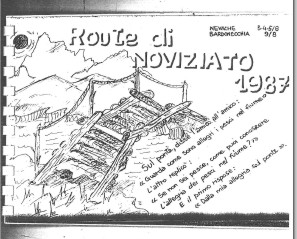 NEVACHE 3-4-5/8
BARDONECCHIA 9/8
Route di
NOVIZIATO
1987
Sul ponte, disse l'amico all'amico:
« Guarda come sono allegri i pesci nel fiume »
L'altro replicò:
« Se non sei pesce, come puoi considerare
l'allegria dei pesci nel fiume? »
E il primo rispose:
« Dalla mia allegria sul ponte ».